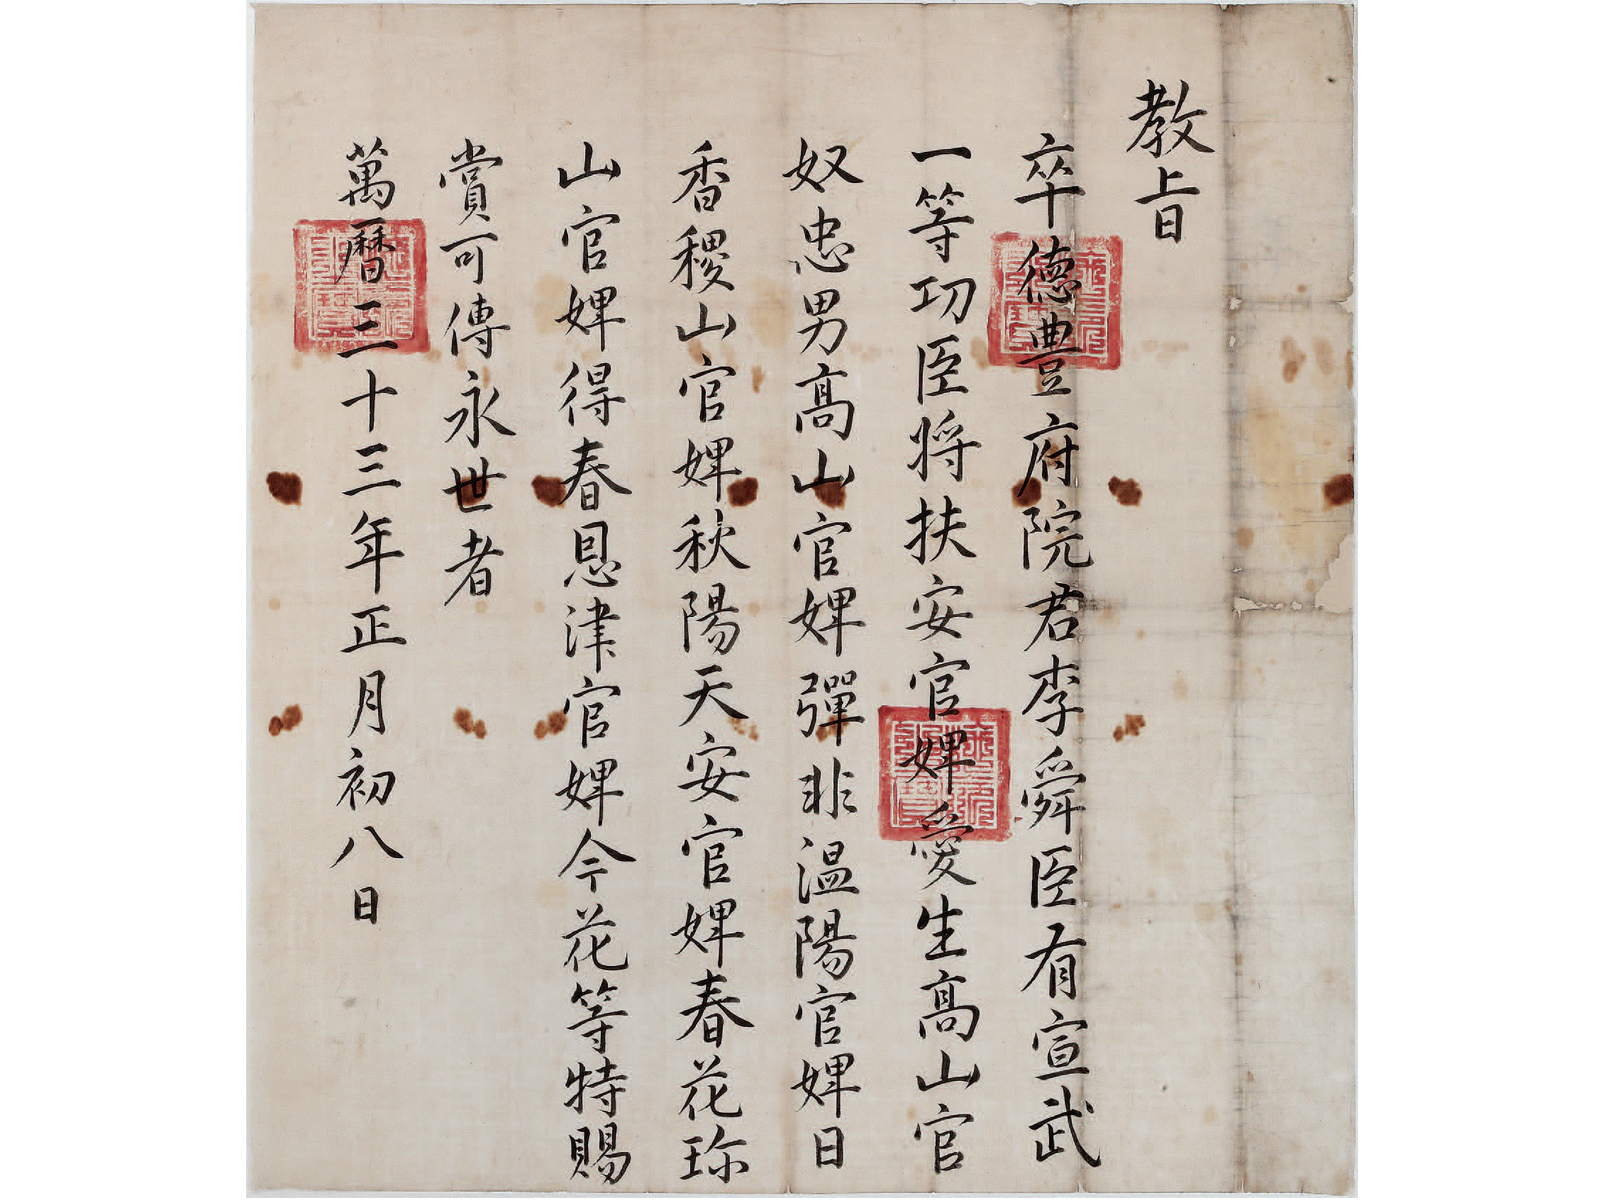 教旨
卒德豊府院君李舜臣有宣武
一等功臣将扶安官婢愛生高山官
奴忠男高山官婢彈非温陽官婢日
香稷山官婢秋陽天安官婢春花珎
山官婢得春恩津官婢今花等特賜
賞可傳永世者
萬曆三十三年正月初八日